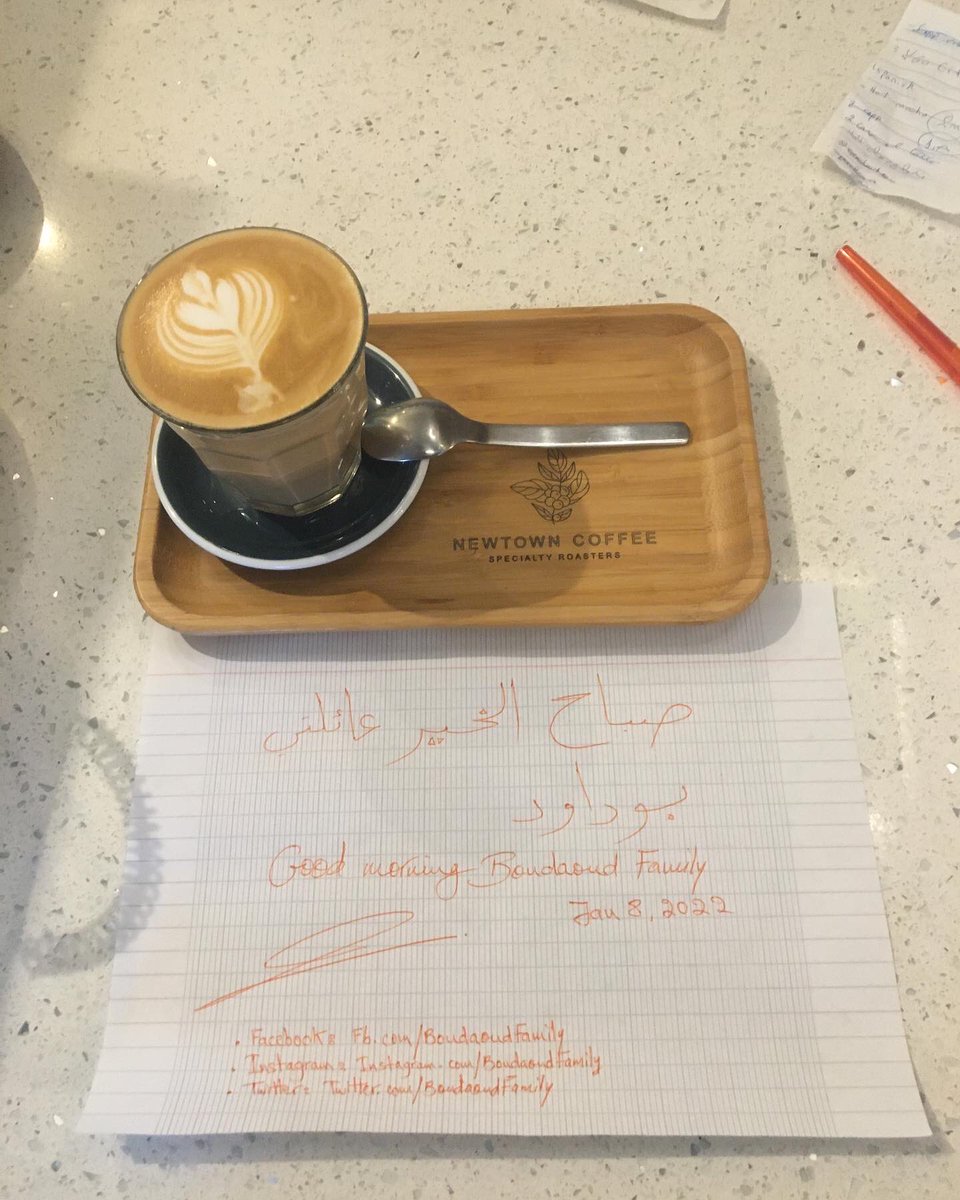 NEWTOWN COFFEE
SPECIALTY ROASTERS
صباح الخير عائلتي
بوداود
Good morning Boudaoud Family
Jan 8, 2022
. Facebook: Fb.com/BoudaoudFamily
. Instagram: Instagram.com/BoudaoudFamily
. Twitter: Twitter.com/BoudaoudFamily